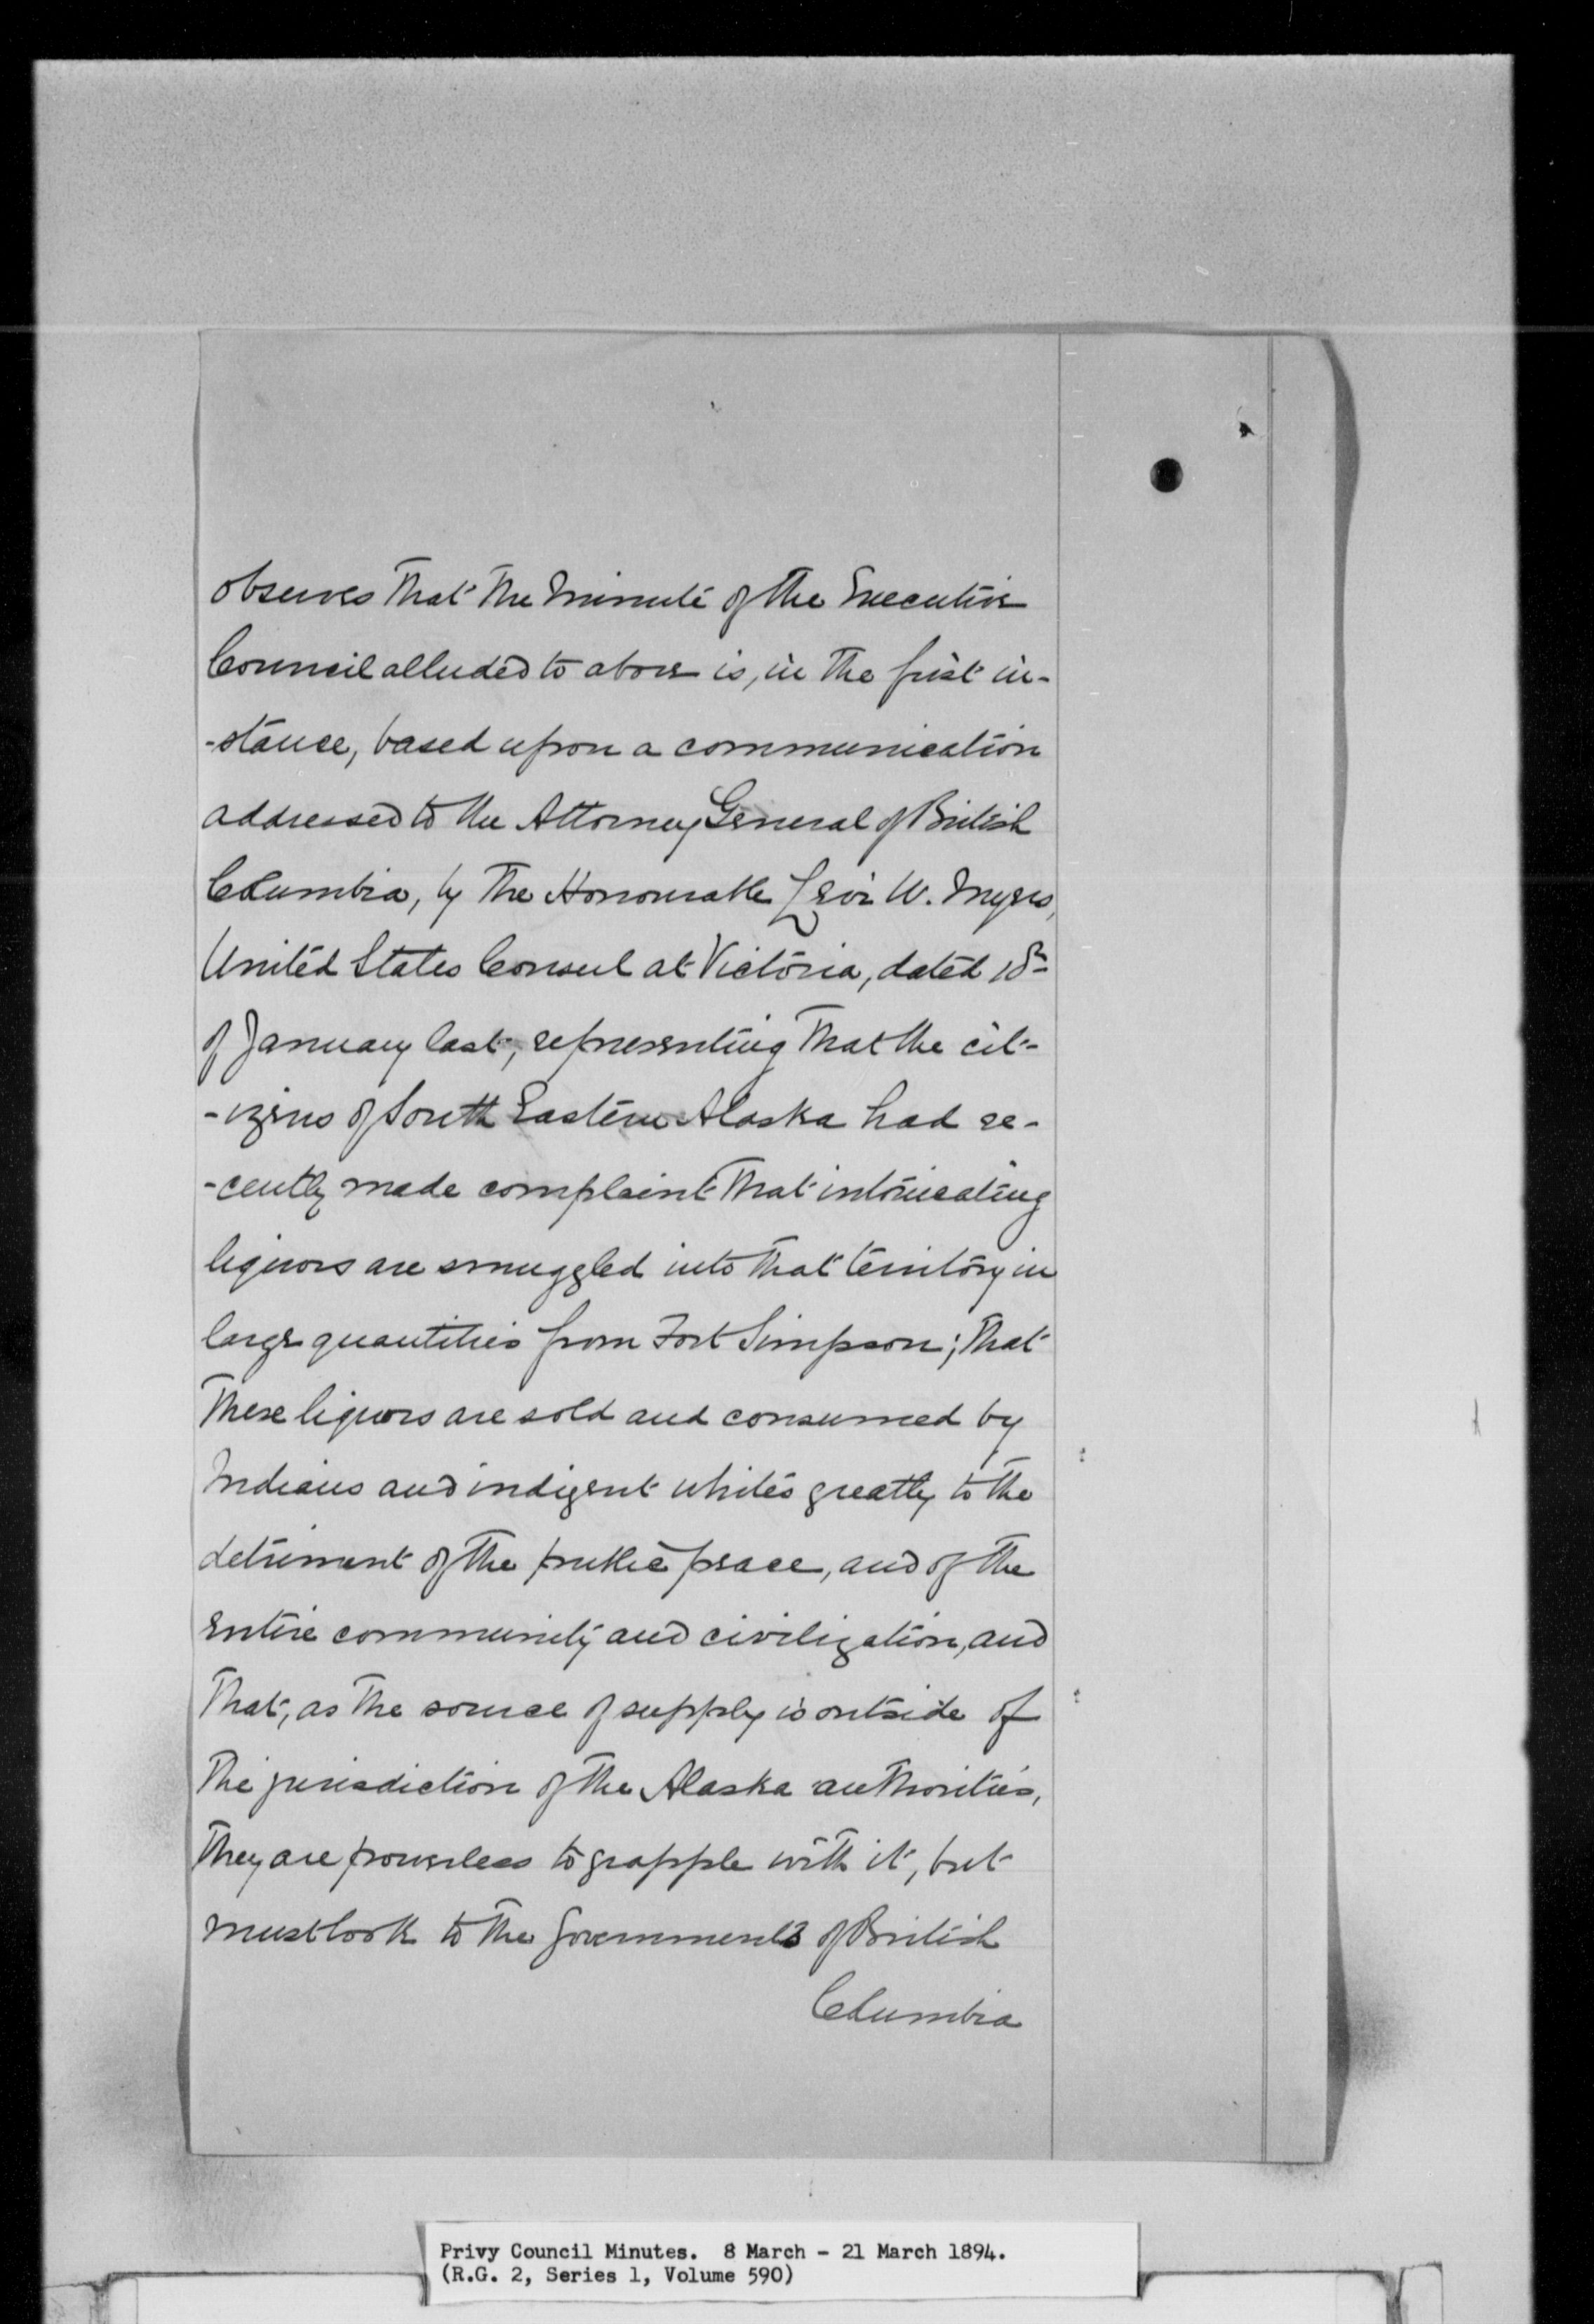 observes that the Minute of the Executive
Council alluded to above is, in the first in-
-stance, based upon a communication
addressed to the Attorney General of British
Columbia, by the Honourable Levi W. Myers,
United States Consul at Victoria, dated 18th
of January last, representing that the cit-
-izens of South Eastern Alaska had re-
-cently made complaint that intoxicating
liquors are smuggled into that territory in
large quantities from Fort Simpson; that
these liquors are sold and consumed by
Indians and indigent whites greatly to the
detriment of the public peace, and of the
entire community and civilization, and
that, as the source of supply is outside of
the jurisdiction of the Alaska authorities,
they are powerless to grapple with it, but
must look to the Governments of British
Columbia
Privy Council Minutes. 8 March - 21 March 1894.
(R.G. 2, Series 1, Volume 590)